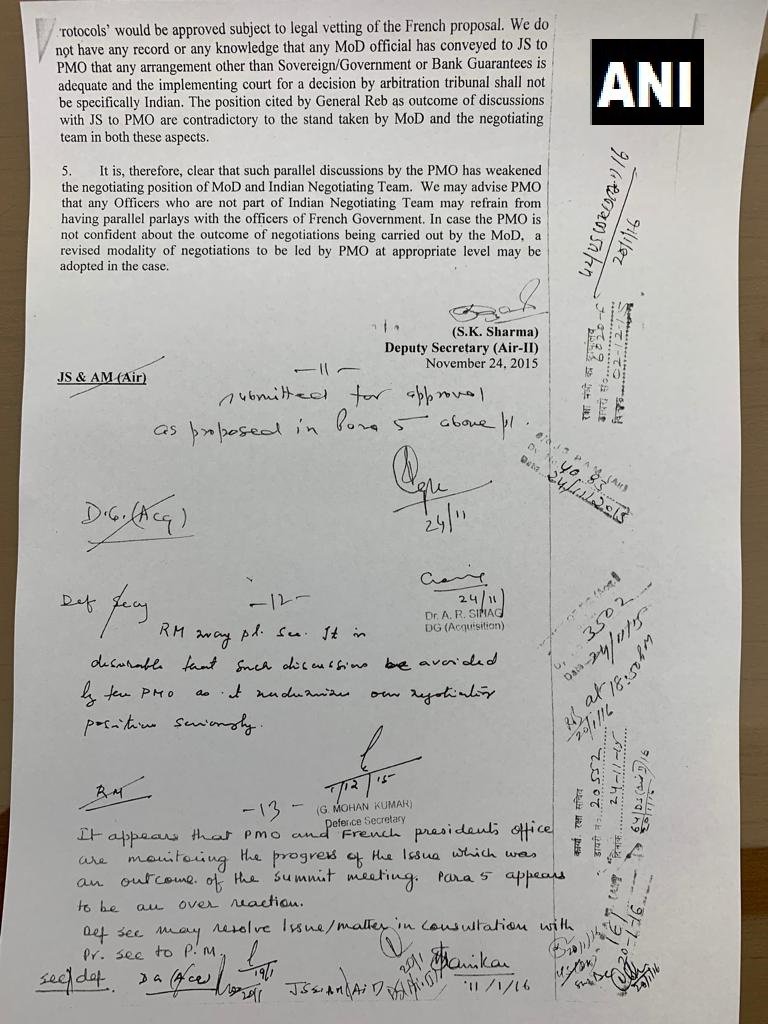 rotocols' would be approved subject to legal vetting of the French proposal. We do
not have any record or any knowledge that any MoD official has conveyed to JS to
PMO that any arrangement other than Sovereign/Government or Bank Guarantees is
adequate and the implementing court for a decision by arbitration tribunal shall not
be specifically Indian. The position cited by General Reb as outcome of discussions
with JS to PMO are contradictory to the stand taken by MoD and the negotiating
team in both these aspects.
5. It is, therefore, clear that such parallel discussions by the PMO has weakened
the negotiating position of MoD and Indian Negotiating Team. We may advise PMO
that any Officers who are not part of Indian Negotiating Team may refrain from
having parallel parlays with the officers of French Government. In case the PMO is
not confident about the outcome of negotiations being carried out by the MoD, a
revised modality of negotiations to be led by PMO at appropriate level may be
adopted in the case.
(S.K. Sharma)
Deputy Secretary (Air-II)
November 24, 2015
JS & AM (Air)
-11-
submitted for approval
as proposed in Para 5 above pl.
24/11
D.G. (Acq)
24/11
Dr. A. R. SIHAG
DG (Acquisition)
Def Secy
-12-
RM may pl. see. It is
desirable that such discussions be avoided
by the PMO as it undermines our negotiating
position seriously.
1/12/15
(G. MOHAN KUMAR)
Defence Secretary
RM
-13-
It appears that PMO and French presidents office
are monitoring the progress of the Issue which was
an outcome of the summit meeting. Para 5 appears
to be an over reaction.
Def sec may resolve Issue/matter in consultation with
Pr. sec to P.M.
11/1/16
sec/def.
DG (Acq)
19/1
20/1
ANI
20/1/16
6020
02-12-15
4083
24/11/2015
3502
24/11/15
at 18:50 PM
20/1/16
20552
24-11-15
20-1-16
20/1/16